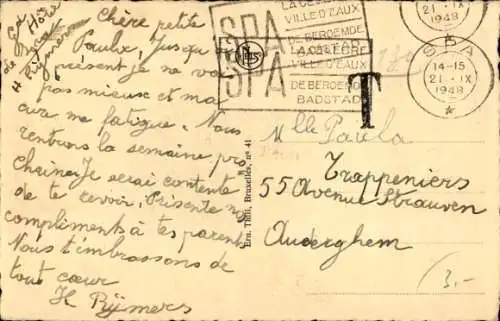 Gd Hôtel
de
H Rijmers
Chère petite
Paula, Jusqu'à
présent je ne vais
pas mieux et ma
cure me fatigue. Nous
rentrons la semaine pro
chaine. Je serai contente
de te revoir. Présente nos
compliments à tes parents
Nous t'embrassons de
tout cœur
H Rijmers
SPA
LA CÉLÈBRE
VILLE D'EAUX
DE BEROEMDE
BADSTAD
SPA
LA CÉLÈBRE
VILLE D'EAUX
DE BEROEMDE
BADSTAD
21 . IX
1948
SPA
14-15
21 . IX
1948
T
Ern. Thill, Bruxelles, n° 41
Mlle Paula
Trappeniers
55 Avenue Strauven
Auderghem
3.-